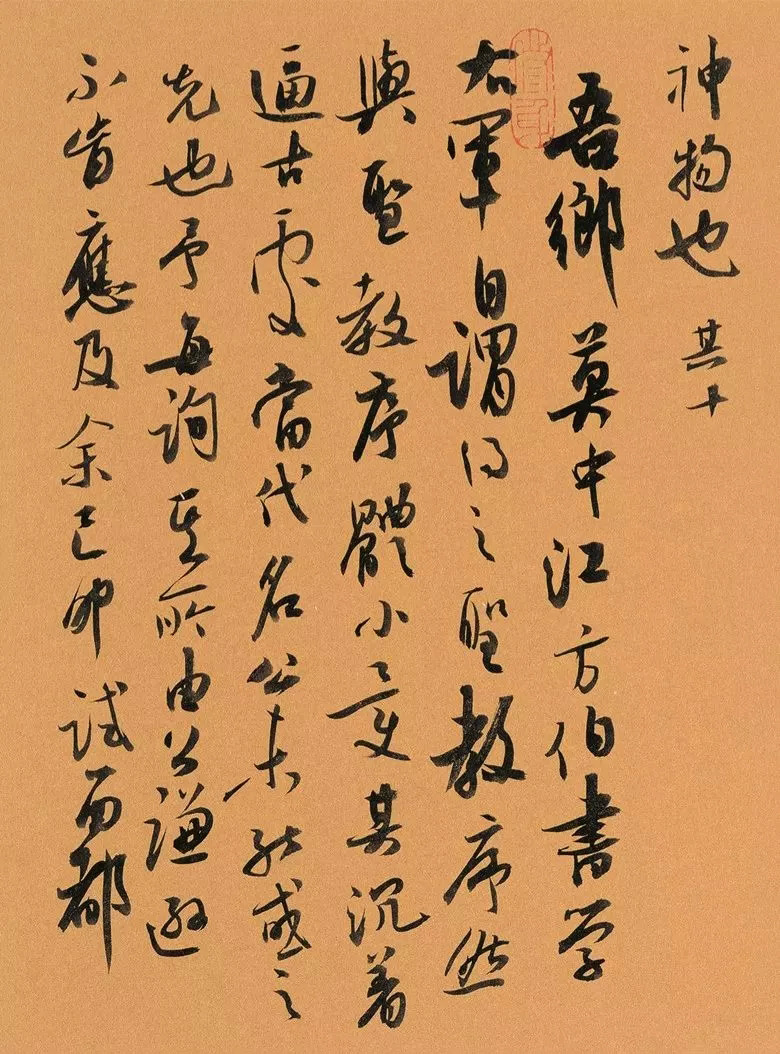 神物也 其十
吾鄉莫中江方伯書学
右軍自謂得之聖教序然
與聖教序體小變其沉着
逼古處當代名公未能或之
先也予每詢其所由公謙遜
不肯應及余己卯試留都